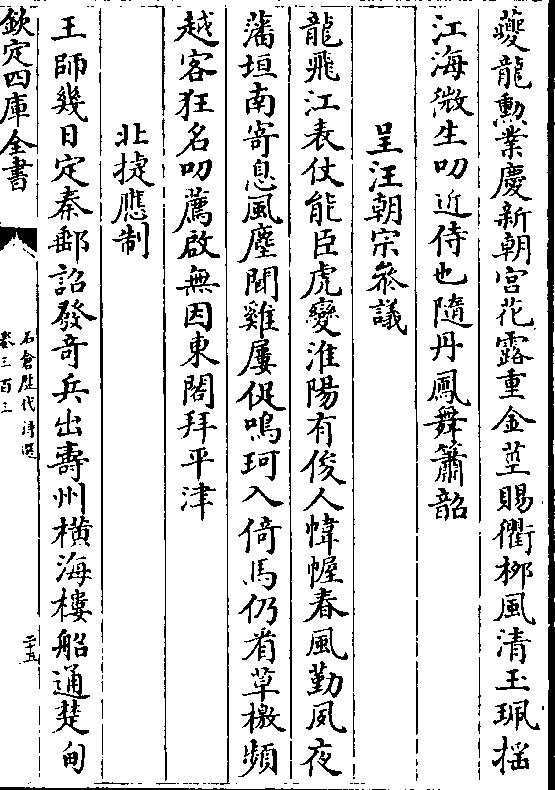 夔龍勲業慶新朝宮花露重金莖賜衢栁風清玉珮揺
江海微生叨近侍也隨丹鳳舞簫韶
呈汪朝宗叅議
龍飛江表仗能臣虎變淮陽有俊人幃幄春風勤夙夜
藩垣南寄息風塵聞雞屢促鳴珂入倚馬仍看草檄頻
越客狂名叨薦啟無因東閣拜平津
北捷應制
王師幾日定秦郵詔發奇兵出壽州横海樓船通楚甸
欽定四庫全書
石倉歴代詩選
卷三百三
二十五